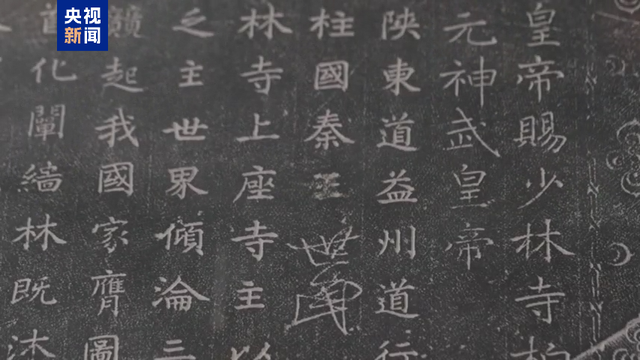 央视
新闻
皇帝賜少林寺
元神武皇帝
陕東道益州道行
柱國秦王世民
林寺上座寺主以
主世界傾淪三
競起我國家膺圖
首化闡緇林既沐